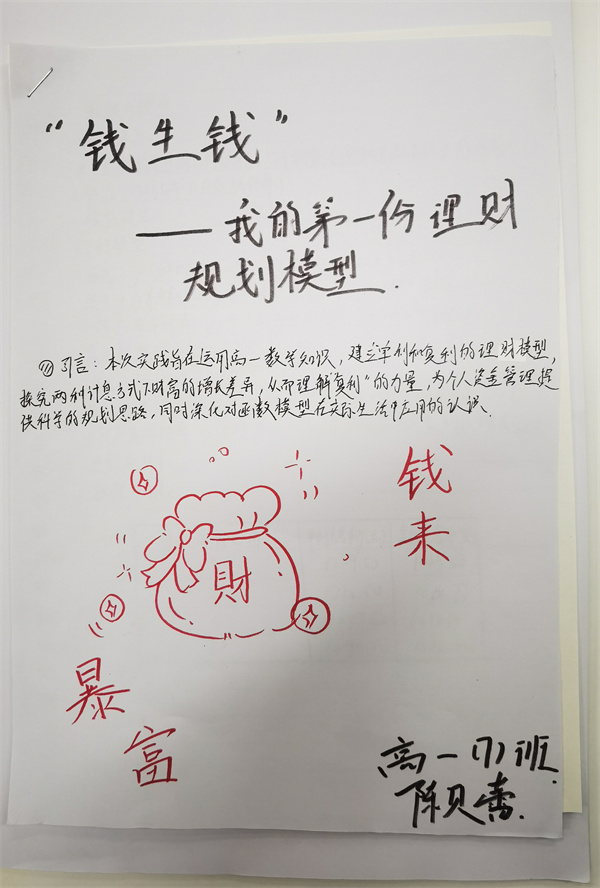 “钱生钱”
——我的第一份理财
规划模型.
引言：本次实践旨在运用高一数学知识，建立单利和复利的理财模型，
探究两种计息方式下财富的增长差异，从而理解“复利”的力量，为个人资金管理提
供科学的规划思路，同时深化对函数模型在实际生活中应用的认识.
钱
来
財
暴
富
高一(7)班.
陈贝